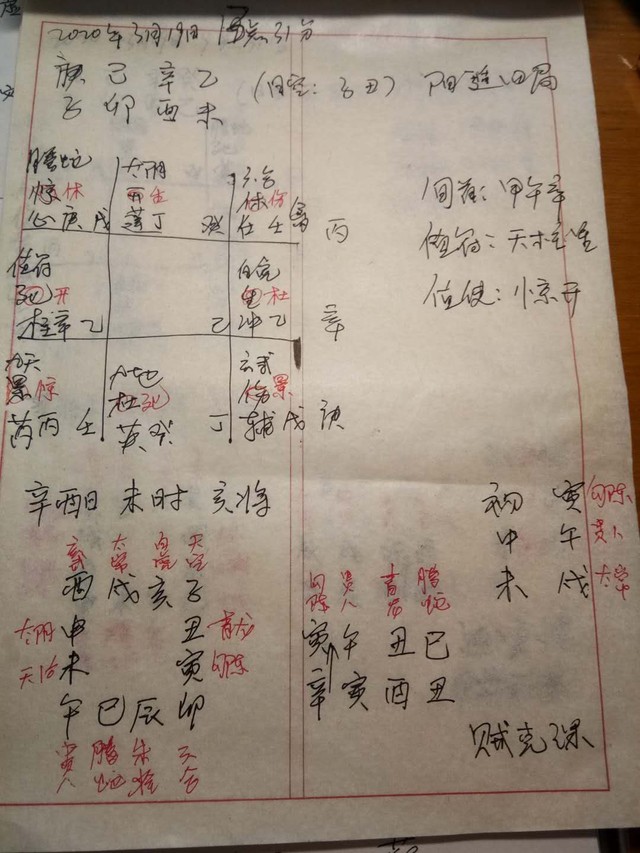 2020年3月19日 31分
庚 己 辛 乙
子 卯 酉 未 （日空：子丑） 阳遁四局
腾蛇 太阴 六合
惊休 生 休伤
心庚戊 蓬丁 癸 任壬 丙
值符 白虎
死开 生杜
柱辛乙 己 冲乙 辛
九天 九地 玄武
景惊 杜死 伤景
芮丙壬 英癸 丁 辅戊 庚
旬首：甲午辛
值符：天柱星
值使：惊开
辛酉日 未时 亥将
初 寅 勾陈
中 午 贵人
末 戌 太常
玄武 太常 白虎 天空
酉 戌 亥 子
太阴 申 丑 青龙
天后 未 寅 勾陈
午 巳 辰 卯
贵人 腾蛇 朱雀 六合
勾陈 贵人 青龙 腾蛇
寅 午 丑 巳
辛 寅 酉 丑
贼克课